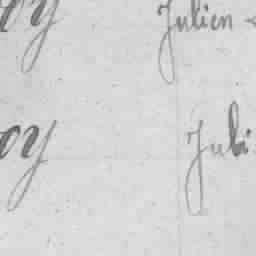 oy Julien
oy Juli